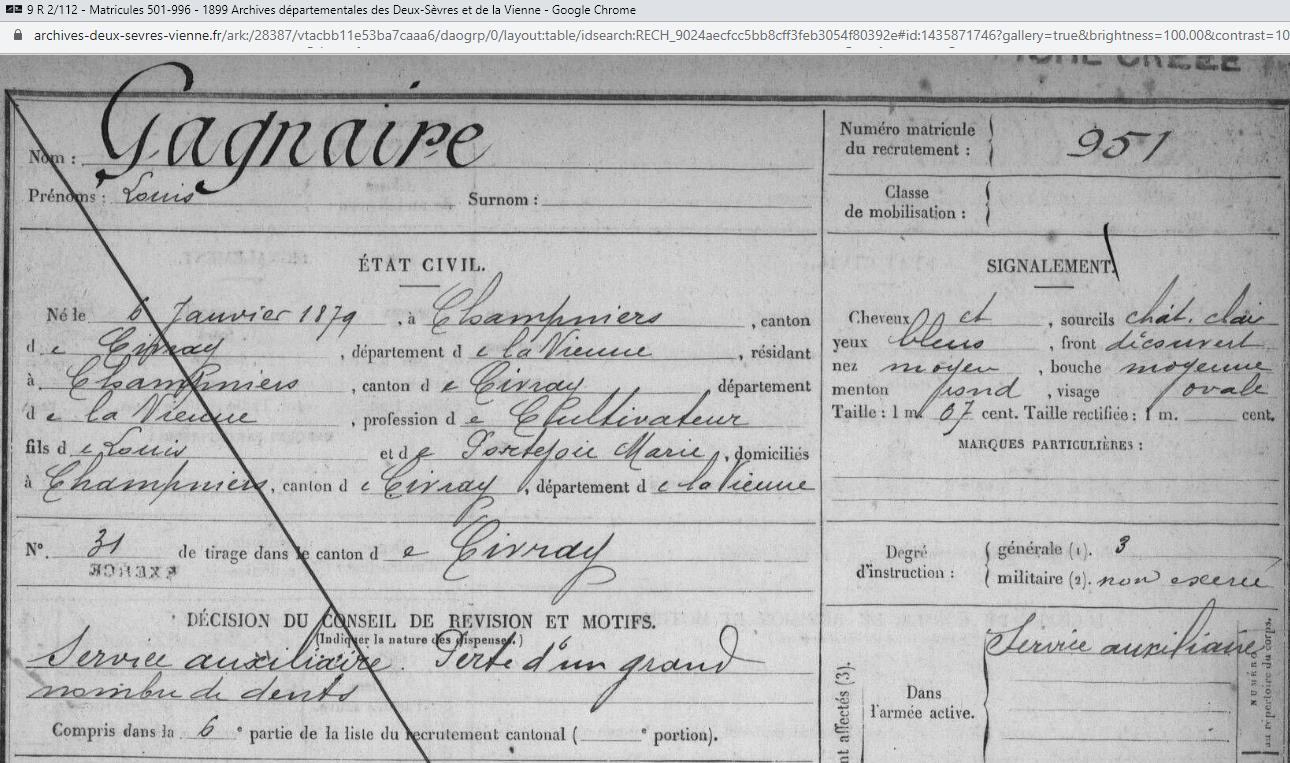 9 R 2/112 - Matricules 501-996 - 1899 Archives départementales des Deux-Sèvres et de la Vienne - Google Chrome
archives-deux-sevres-vienne.fr/ark:/28387/vtacbb11e53ba7caaa6/daogrp/0/layout:table/idsearch:RECH_9024aecfcc5bb8cff3feb3054f80392e#id:1435871746?gallery=true&brightness=100.00&contrast=10
Nom : Gagnaire
Prénoms : Louis Surnom :
Numéro matricule du recrutement : 951
Classe de mobilisation :
ÉTAT CIVIL.
Né le 6 Janvier 1879, à Champniers, canton
de Civray, département de la Vienne, résidant
à Champniers, canton de Civray département
de la Vienne, profession de Cultivateur
fils de Louis et de Portejoie Marie, domiciliés
à Champniers, canton de Civray, département de la Vienne
SIGNALEMENT.
Cheveux et, sourcils chât. clair
yeux bleus, front découvert
nez moyen, bouche moyenne
menton rond, visage ovale
Taille : 1 m. 67 cent. Taille rectifiée : 1 m. cent.
MARQUES PARTICULIÈRES :
N°. 31 de tirage dans le canton de Civray
Degré d'instruction :
générale (1). 3
militaire (2). non exercé
DÉCISION DU CONSEIL DE REVISION ET MOTIFS.
(Indiquer la nature des dispenses.)
Service auxiliaire. Perte d'un grand
nombre de dents
Compris dans la 6e partie de la liste du recrutement cantonal ( e portion).
nt affectés (3).
Dans l'armée active.
Service auxiliaire
NUMÉRO
au répertoire du corps.